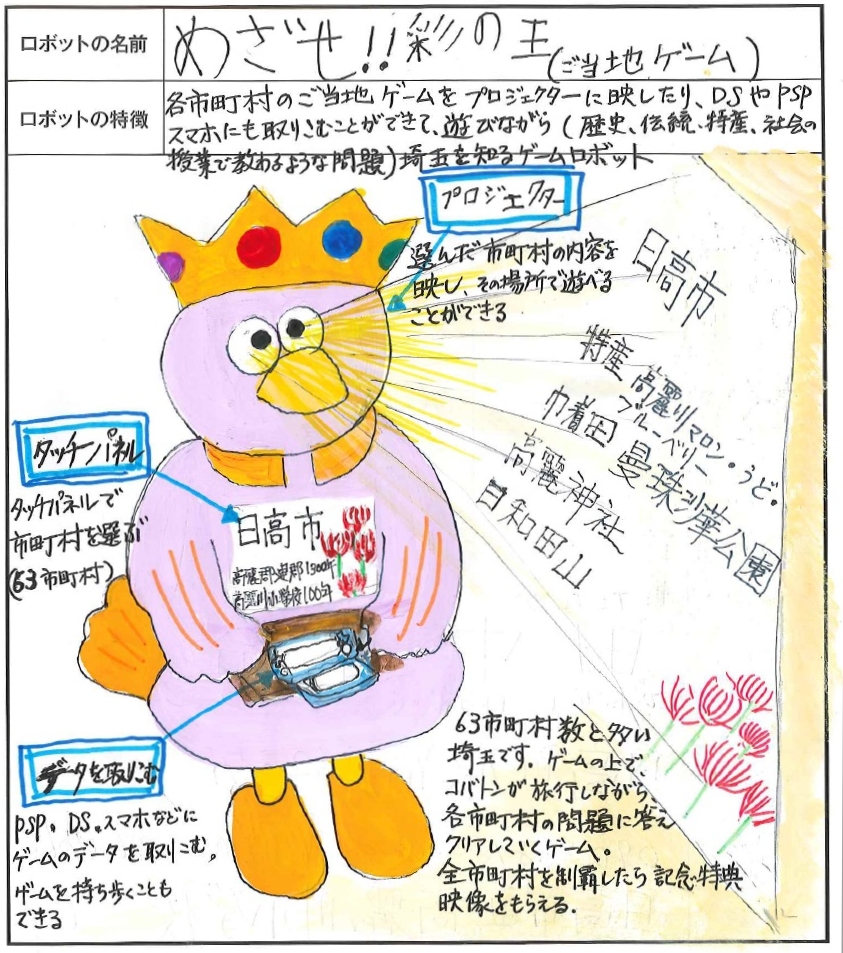 ロボットの名前
めざせ!!彩の王(ご当地ゲーム)
ロボットの特徴
各市町村のご当地ゲームをプロジェクターに映したり、DSやPSP
スマホにも取りこむことができて、遊びながら(歴史、伝統、特産、社会の
授業で教わるような問題)埼玉を知るゲームロボット
プロジェクター
選んだ市町村の内容を
映し、その場所で遊べる
ことができる
日高市
特産 高麗川マロン・うど。
ブルーベリー
巾着田 曼珠沙華公園
高麗神社
日和田山
タッチパネル
タッチパネルで
市町村を選ぶ
(63市町村)
日高市
高麗郡建郡1300年
高麗川小学校100年
データを取りこむ
PSP。DS。スマホなどに
ゲームのデータを取りこむ。
ゲームを持ち歩くことも
できる
63市町村数と多い
埼玉です。ゲームの上で、
コバトンが旅行しながら
各市町村の問題に答え
クリアしていくゲーム。
全市町村を制覇したら記念特典
映像をもらえる。